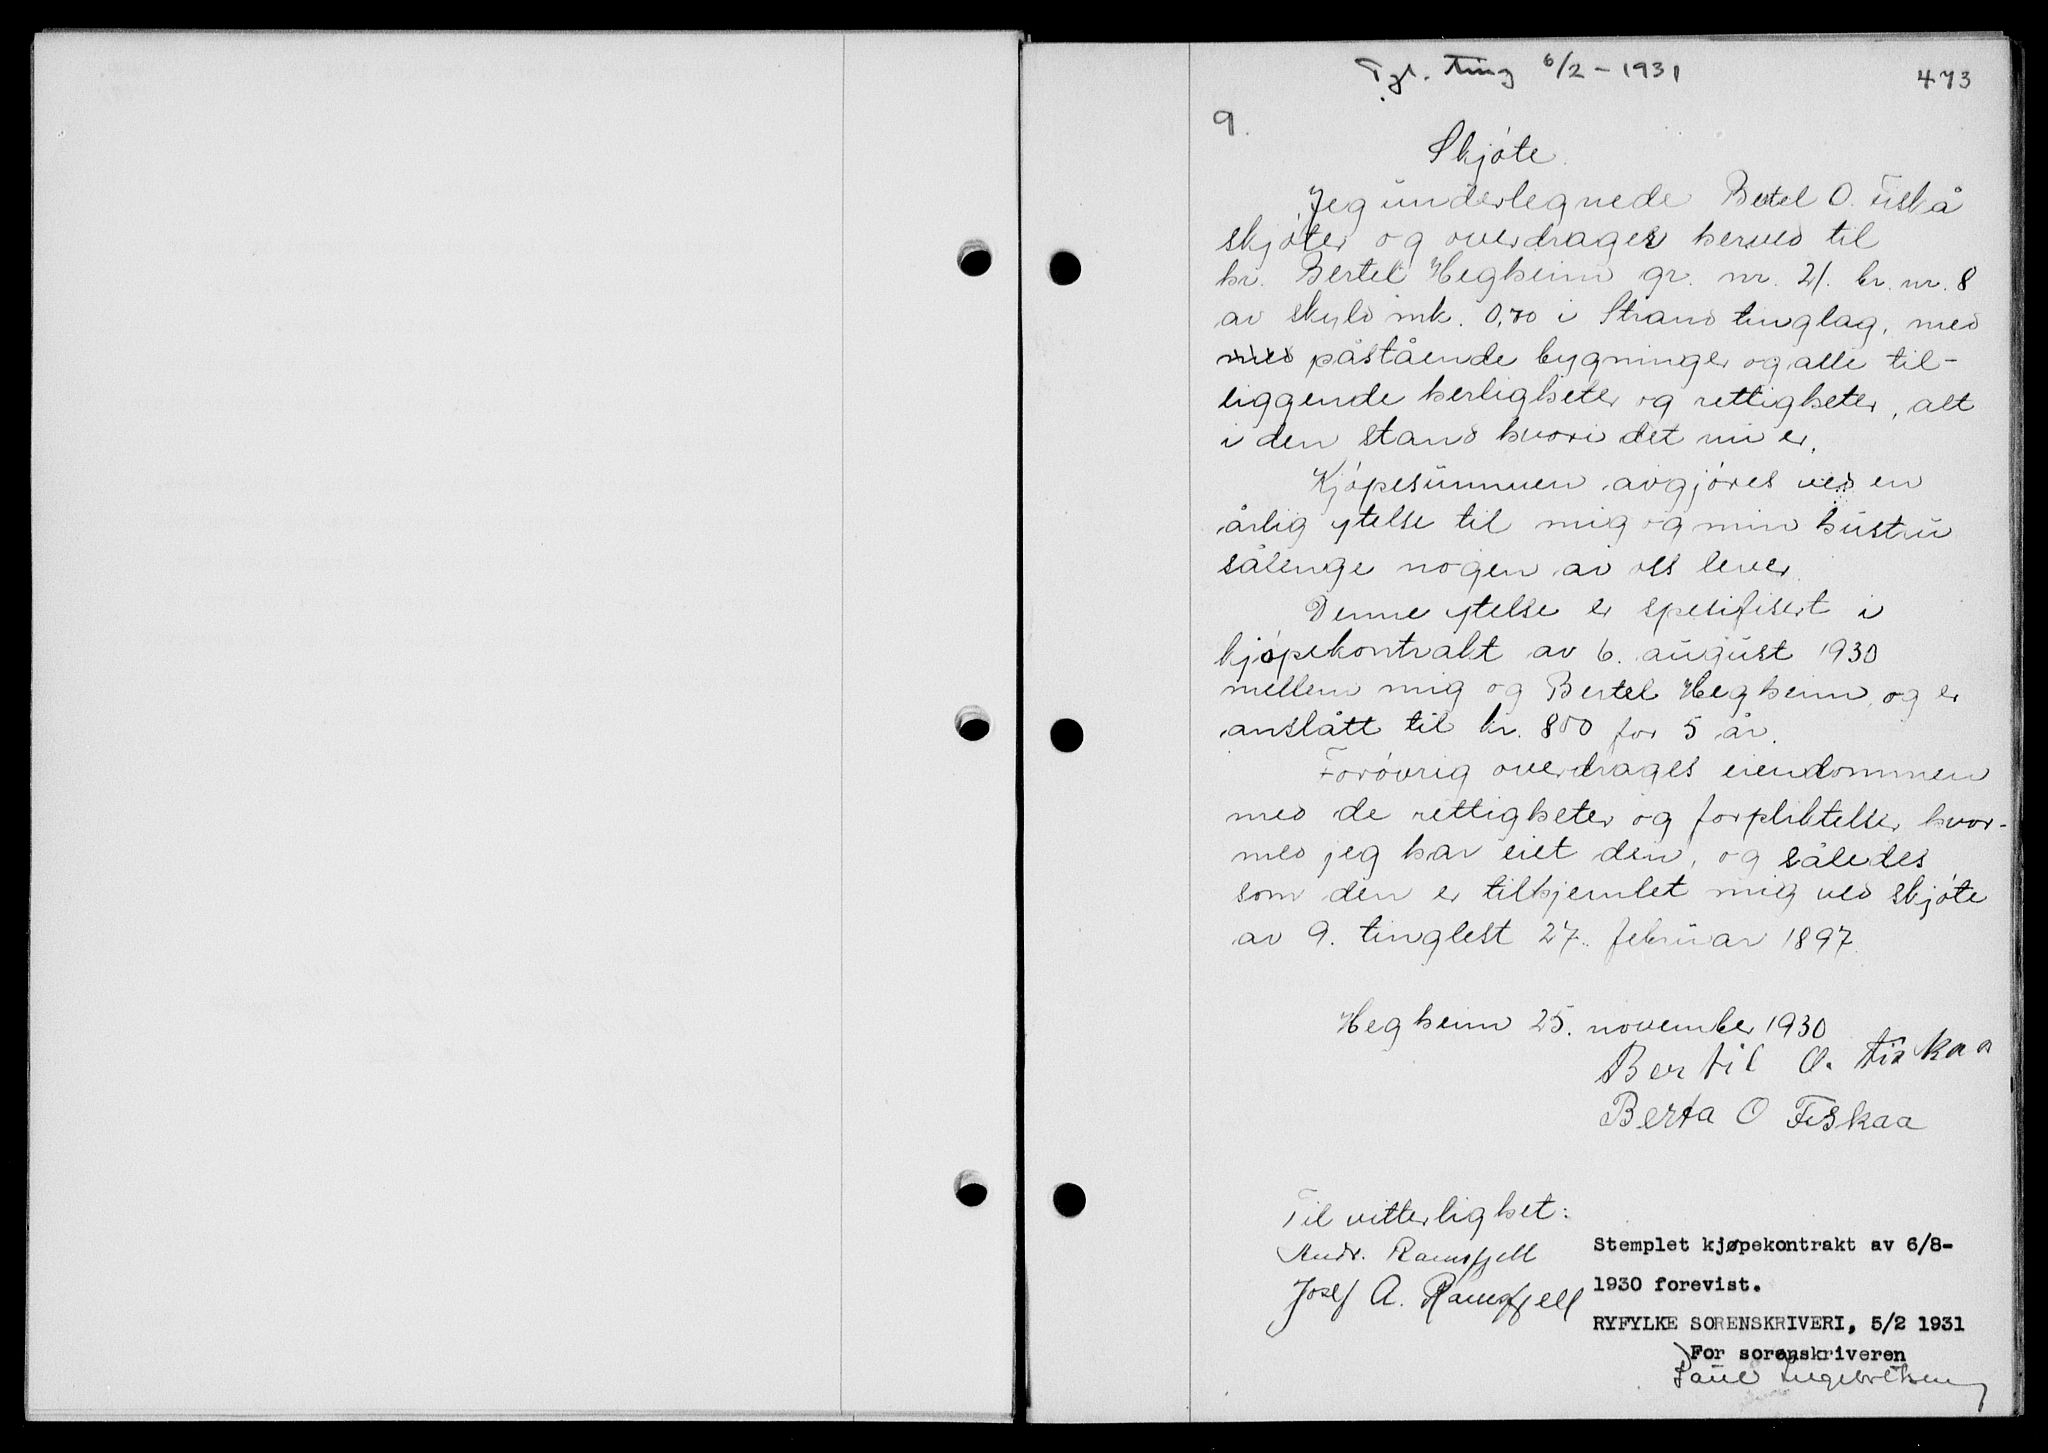 Tgl. ting 6/2 - 1931
473
9.
Skjøte.
Jeg underlegnede Bertel O. Fiskå
skjøter og overdrager herved til
hr. Bertel Hegheim gr. nr. 21. br. nr. 8
av skyld mk. 0,70 i Strand tinglag, med
med påstående bygninger og alle til-
liggende herligheter og rettigheter, alt
i den stand hvori det nu er.
Kjøpesummen avgjøres ved en
årlig ytelse til mig og min hustru
sålenge nogen av oss lever.
Denne ytelse er spesifisert i
kjøpekontrakt av 6. august 1930
mellem mig og Bertel Hegheim, og er
anslått til kr. 800 for 5 år.
Forøvrig overdrages eiendommen
med de rettigheter og forpliktelser hvor-
med jeg har eiet den, og således
som den er tilhjemlet mig ved skjøte
av 9. tinglest 27. februar 1897.
Hegheim 25. november 1930
Bertil O. Fiskaa
Berta O Fiskaa
Til vitterlighet:
Andr. Ramsfjell
Josef A. Ramsfjell
Stemplet kjøpekontrakt av 6/8-
1930 forevist.
RYFYLKE SORENSKRIVERI, 5/2 1931
For sorenskriveren
Paul Ingebretsen